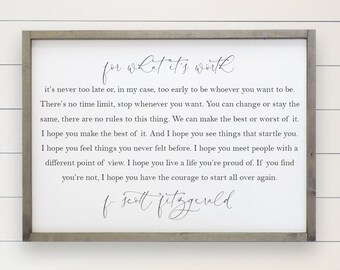 for what it's worth
it's never too late or, in my case, too early to be whoever you want to be.
There's no time limit, stop whenever you want. You can change or stay the
same, there are no rules to this thing. We can make the best or worst of it.
I hope you make the best of it. And I hope you see things that startle you.
I hope you feel things you never felt before. I hope you meet people with a
different point of view. I hope you live a life you're proud of. If you find
you're not, I hope you have the courage to start all over again.
f. scott fitzgerald